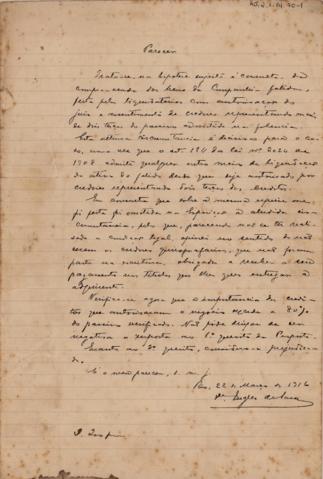 Parecer
Trata-se, na hypothese sujeita á consulta, da
compra-venda dos bens da Companhia fallida,
feita pelo liquidatarios com autorização do
juiz e assentimento de credores representando mais
de dois terços do passivo admittido na fallencia.
Esta ultima circumstancia é decisiva para o ca-
so, uma vez que o art. 124 da lei nº 2024 de
1908 admitte qualquer outro meio de liquidação
do activo do fallido desde que seja autorizado por
credores representando dois terços dos creditos.
Em consulta que sobre a mesma especie me
foi feita foi omittida na exposição a alludida cir-
cumstancia, pelo que, parecendo não se ter realiza-
do a condição legal, opinei no sentido de não
serem os credores chirographarios, que não foram
parte na escriptura, obrigados a receber o seu
pagamento em titulos que lhes quer entregar o
adquirente.
Verifica-se agora que a importancia dos credi-
tos que autorizaram o negocio excede a 80%
do passivo verificado. Não pode deixar de ser
negativa a resposta ao 1º quesito da Proposta.
Quanto ao 2º quesito, considero-o prejudica-
do.
É o meu parecer, s. m. j.
Rio, 22 de Março de 1916
Dr. Inglez de Souza